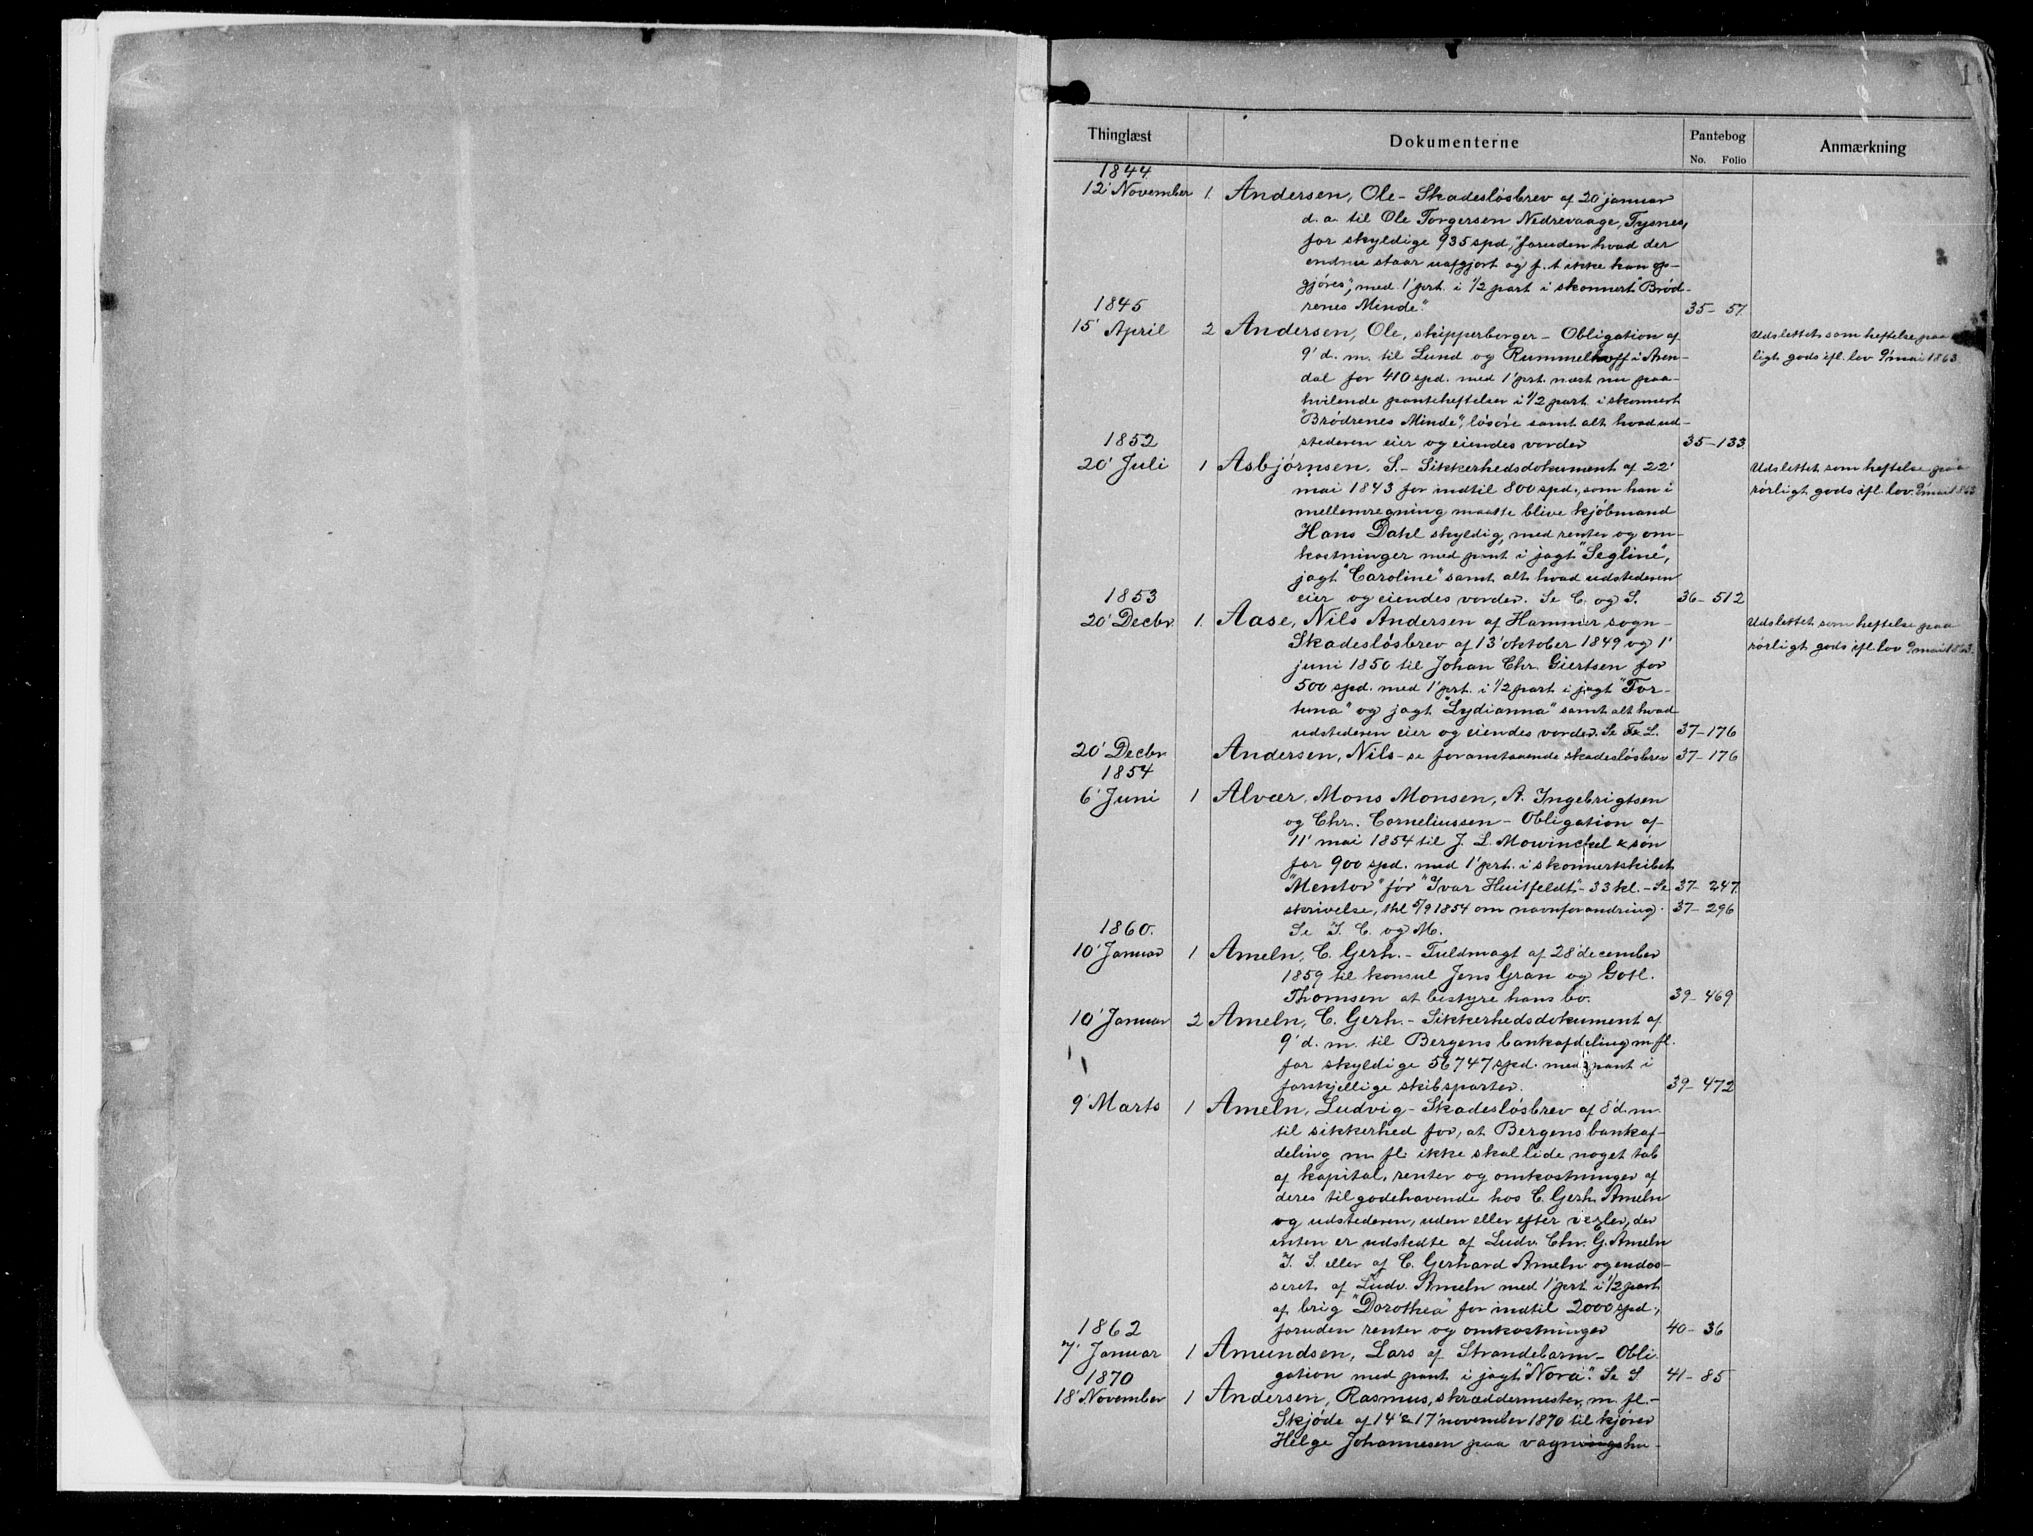 1
Thinglæst Dokumenterne Pantebog Anmærkning
No. Folio
1844.
12' November 1. Andersen, Ole - Skadesløsbrev af 20' januar
d. a. til Ole Torgersen Nedrevaage, Tysnes,
for skyldige 935 spd, "foruden hvad der
endnu staar uafgjort og f. t ikke kan op-
gjøres", med 1' prt. i 1/2 part i skonnert "Brød-
1845 renes Minde". 35- 57
15' April 2 Andersen, Ole, skipperborger - Obligation af Udslettet som heftelse paa
9' d. m. til Lund og Rummelhoff i Aren- ligt gods ifl. lov 9' mai 1863
dal for 410 spd. med 1' prt. næst nu paa-
hvilende panteheftelser i 1/2 part i skonnert
"Brødrenes Minde", løsøre samt alt hvad ud-
1852 stederen eier og eiendes vorder 35-133
20' Juli 1 Asbjørnsen, S. - Sikkerhedsdokument af 22' Udslettet som heftelse paa
mai 1843 for indtil 800 spd., som han i rørligt gods ifl. lov. 9' mai 1863
mellemregning maatte blive kjøbmand
Hans Dahl skyldig, med renter og om-
kostninger med pant i jagt "Segline",
jagt "Caroline" samt alt hvad udstederen
1853 eier og eiendes vorder. Se C. og S. 36- 512
20' Decbr. 1. Aase, Nils Andersen af Hammer sogn - Udslettet som heftelse paa
Skadesløsbrev af 13' oktober 1849 og 1' rørligt gods ifl lov 9' mai 1863.
juni 1850 til Johan Chr. Giertsen for
500 spd. med 1' prt. i 1/2 part i jagt "For-
tuna" og jagt "Lydianna" samt alt hvad
udstederen eier og eiendes vorder. Se F. L. 37-176
20' Decbr Andersen, Nils - se foranstaaende skadesløsbrev 37-176
1854
6' Juni 1 Alvær, Mons Monsen, A. Ingebrigtsen
og Chr. Corneliussen - Obligation af
11' mai 1854 til J. L. Mowinckel & søn
for 900 spd. med 1' prt. i skonnertskibet
"Mentor" før "Ivar Huitfeldt" - 33 kl. - Se 37- 247.
skrivelse, thl 5/9 1854 om navnforandring. 37- 296
1860. Se I. C. og M.
10' Januar 1 Ameln, C. Gerh. - Fuldmagt af 28' december
1859 til konsul Jens Gran og Gotl.
Thomsen at bestyre hans bo. 39- 469
10' Januar 2 Ameln, C. Gerh. - Sikkerhedsdokument af
9' d. m. til Bergens bankafdeling m fl.
for skyldige 56747 spd. med pant i
forskjellige skibsparter. 39- 472
9' Marts 1 Ameln, Ludvig - Skadesløsbrev af 8' d. m.
til sikkerhed for, at Bergens bankaf-
deling m fl. ikke skal lide noget tab
af kapital, renter og omkostninger af
deres tilgodehavende hos C. Gerh. Ameln
og udstederen, uden eller efter vexler, der
enten er udstedte af Ludv. Chr. G. Ameln
I. S. eller af C. Gerhard Ameln og endos-
seret af Ludv. Ameln med 1' prt i 1/2 part
af brig "Dorothea" for indtil 2000 spd.,
1862 foruden renter og omkostninger 40- 36
7' Januar 1 Amundsen, Lars af Strandebarm - Obli-
1870 gation med pant i jagt "Nora". Se S 41- 85
18' November 1 Andersen, Rasmus, skræddermester, m. fl. -
Skjøde af 14' & 17' november 1870 til kjører
Helge Johannesen paa vogn